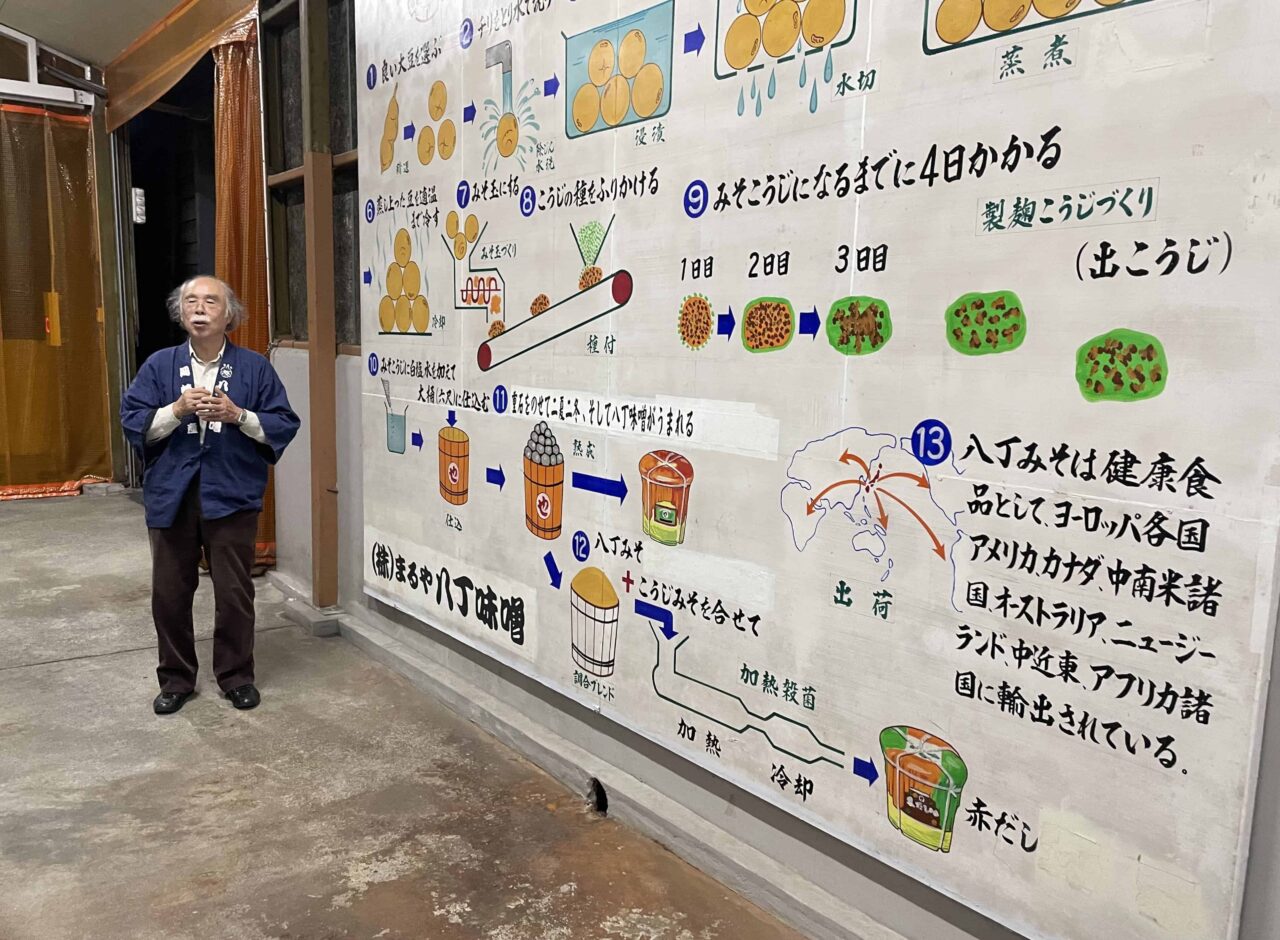 ① 良い大豆を選ぶ
② チリをとり水で洗う
精選
除じん
水洗
浸漬
水切
蒸煮
⑥ 蒸し上った豆を適温
まで冷す
冷却
⑦ みそ玉にする
みそ玉づくり
⑧ こうじの種をふりかける
種付
⑨ みそこうじになるまでに4日かかる
製麹こうじづくり
(出こうじ)
1日目
2日目
3日目
⑩ みそこうじに白塩水を加えて
大桶(六尺)に仕込む
仕込
⑪ 重石をのせて二夏二冬、そして八丁味噌がうまれる
熟成
(株)まるや八丁味噌
⑫ 八丁みそ
+こうじみそを合せて
調合ブレンド
加熱殺菌
加熱
冷却
赤だし
出荷
⑬ 八丁みそは健康食
品として、ヨーロッパ各国
アメリカ、カナダ、中南米諸
国、オーストラリア、ニュージー
ランド、中近東、アフリカ諸
国に輸出されている。